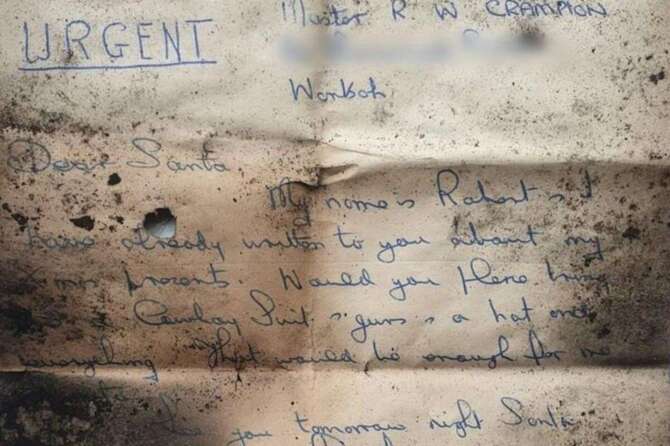 URGENT
Master R W CRAMPION
Worksoh
Dear Santa
My name is Robert &
have already written to you about my
xmas presents. Would you please bring
a Cowboy Suit & guns & a hat and
everything That would be enough for me
See you tomorrow night Santa